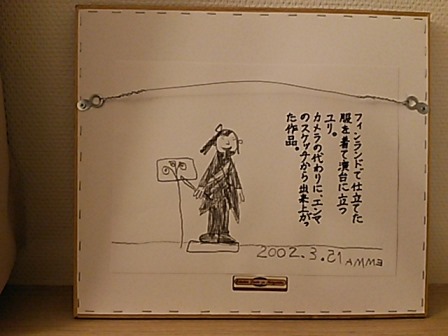 フィンランドで仕立てた
服を着て演台に立つ
ユリ。
カメラの代わりに、エンマ
のスケッチから出来上がっ
た作品。
2002.3.21 AMMƎ